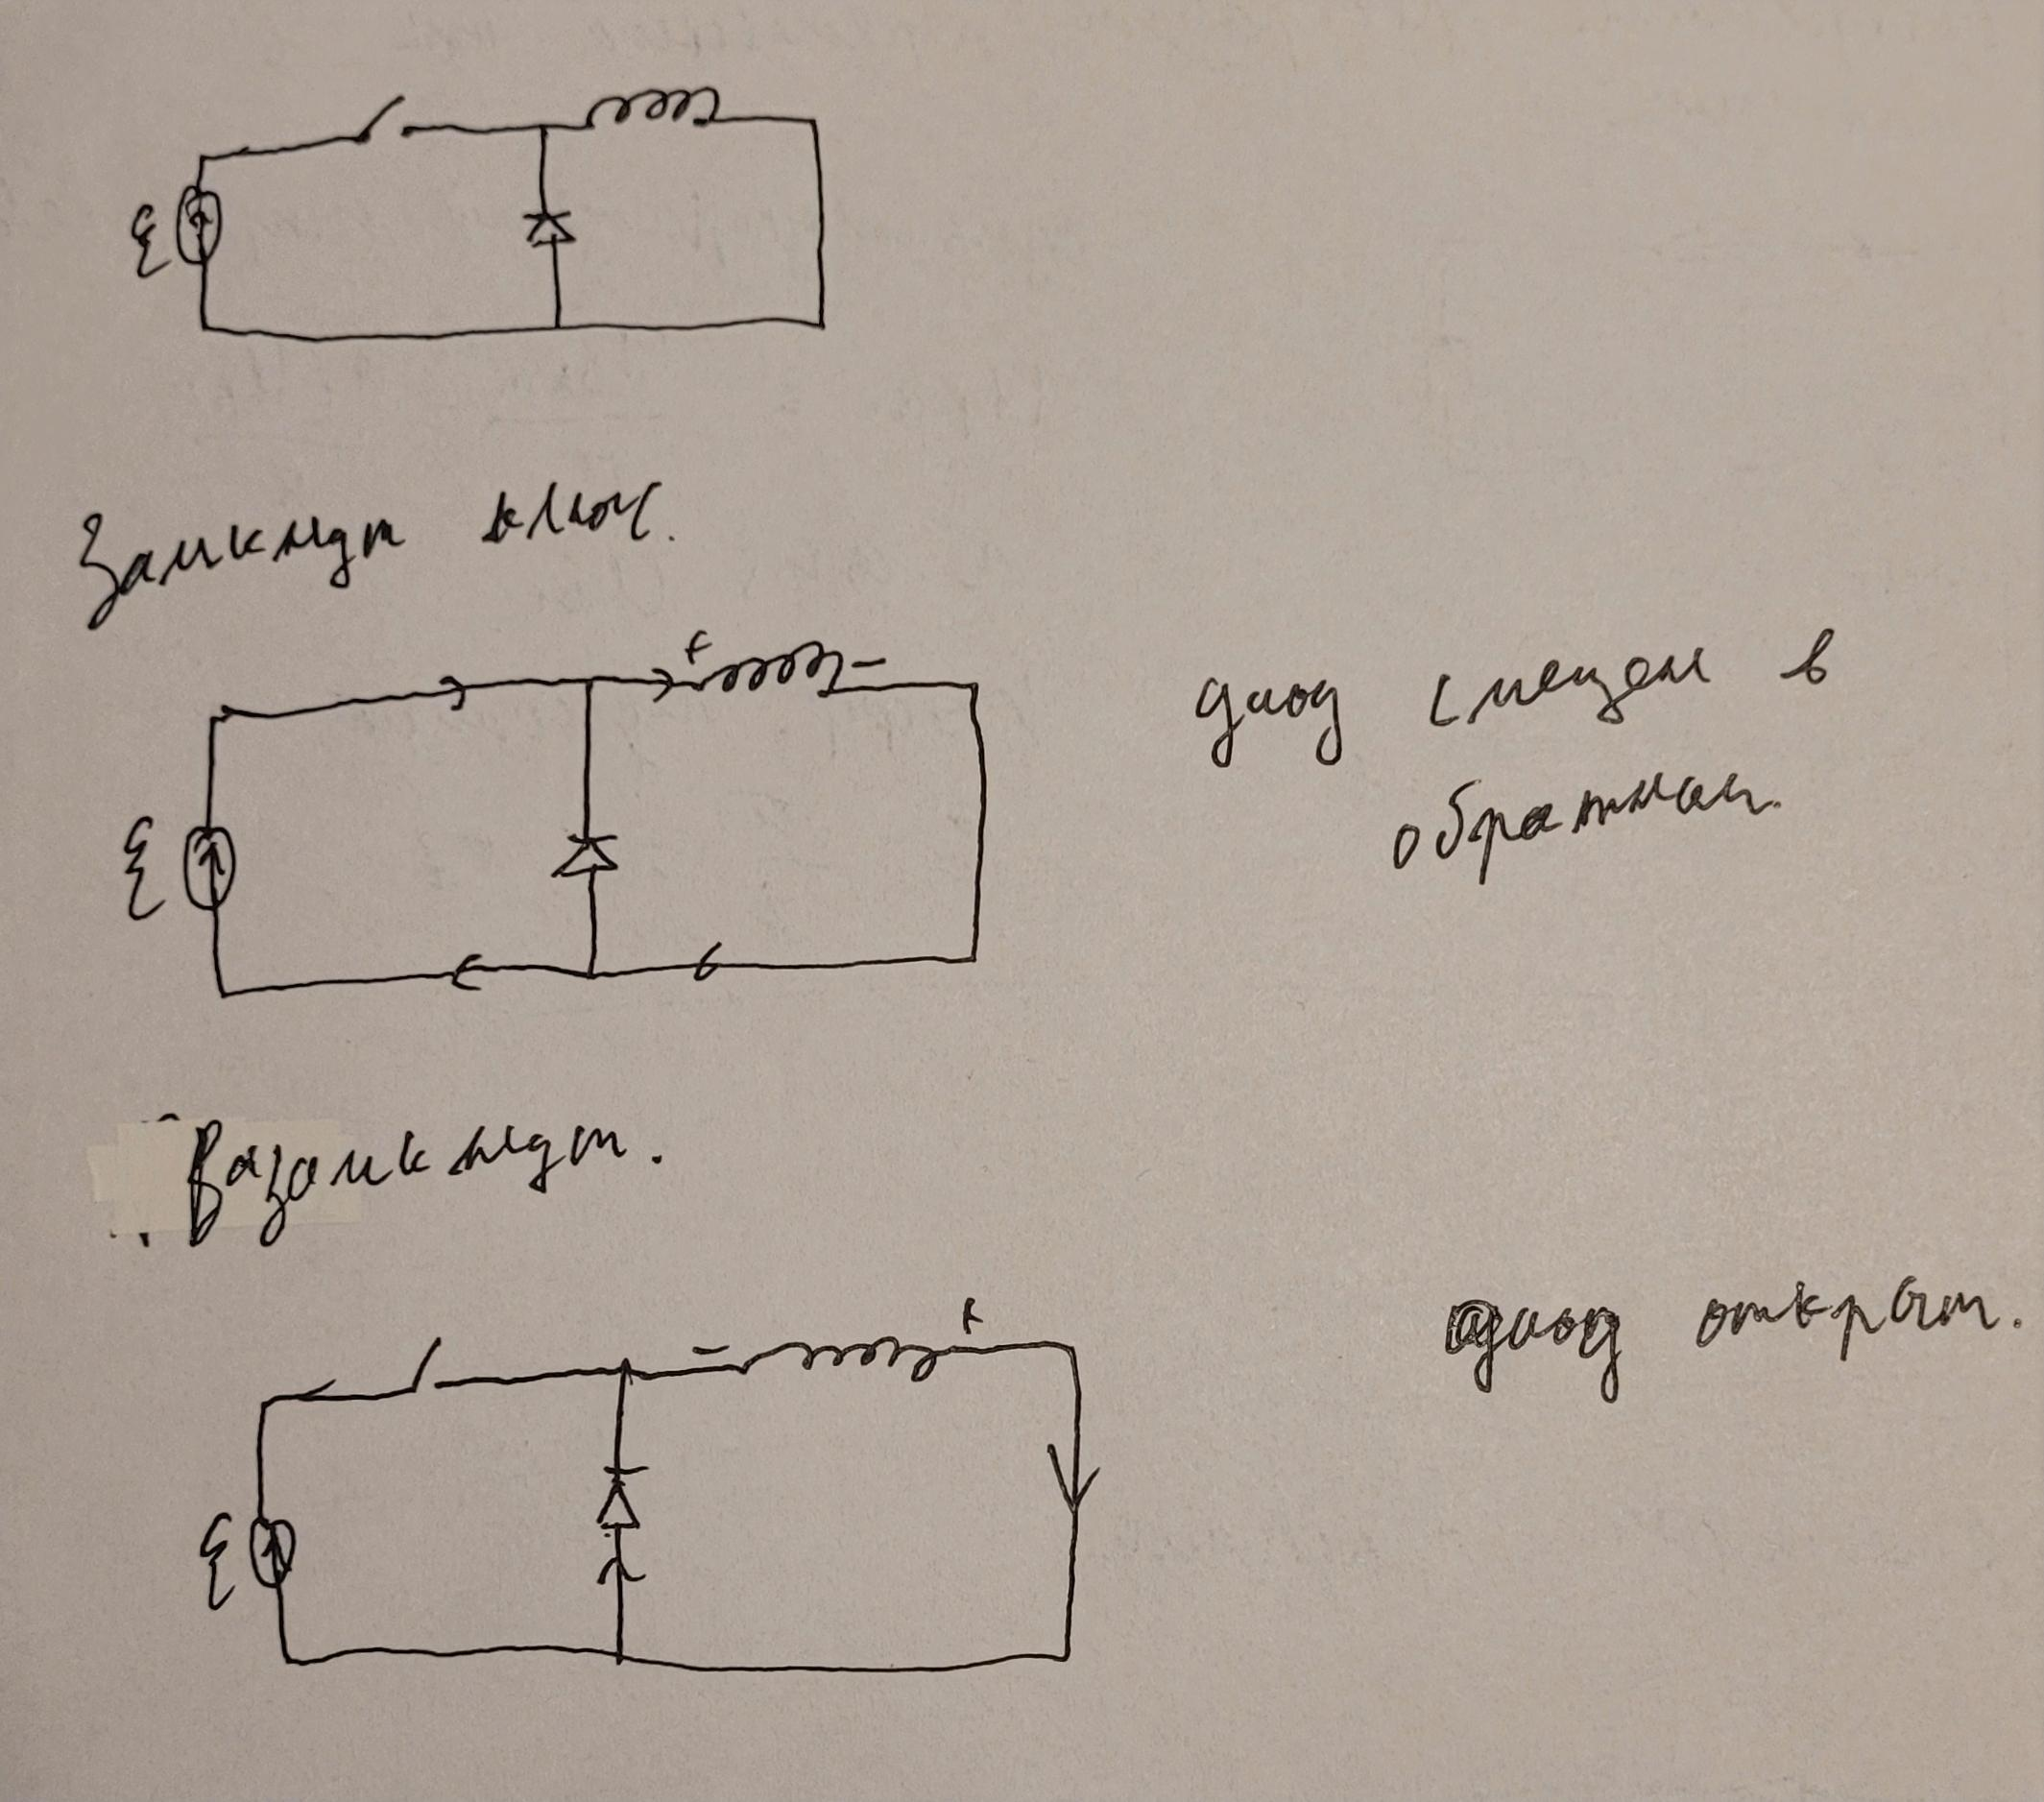 ℰ
Замкнут ключ.
+ −
диод смещен в
обратном.
ℰ
Разомкнут.
− +
диод открыт.
ℰ